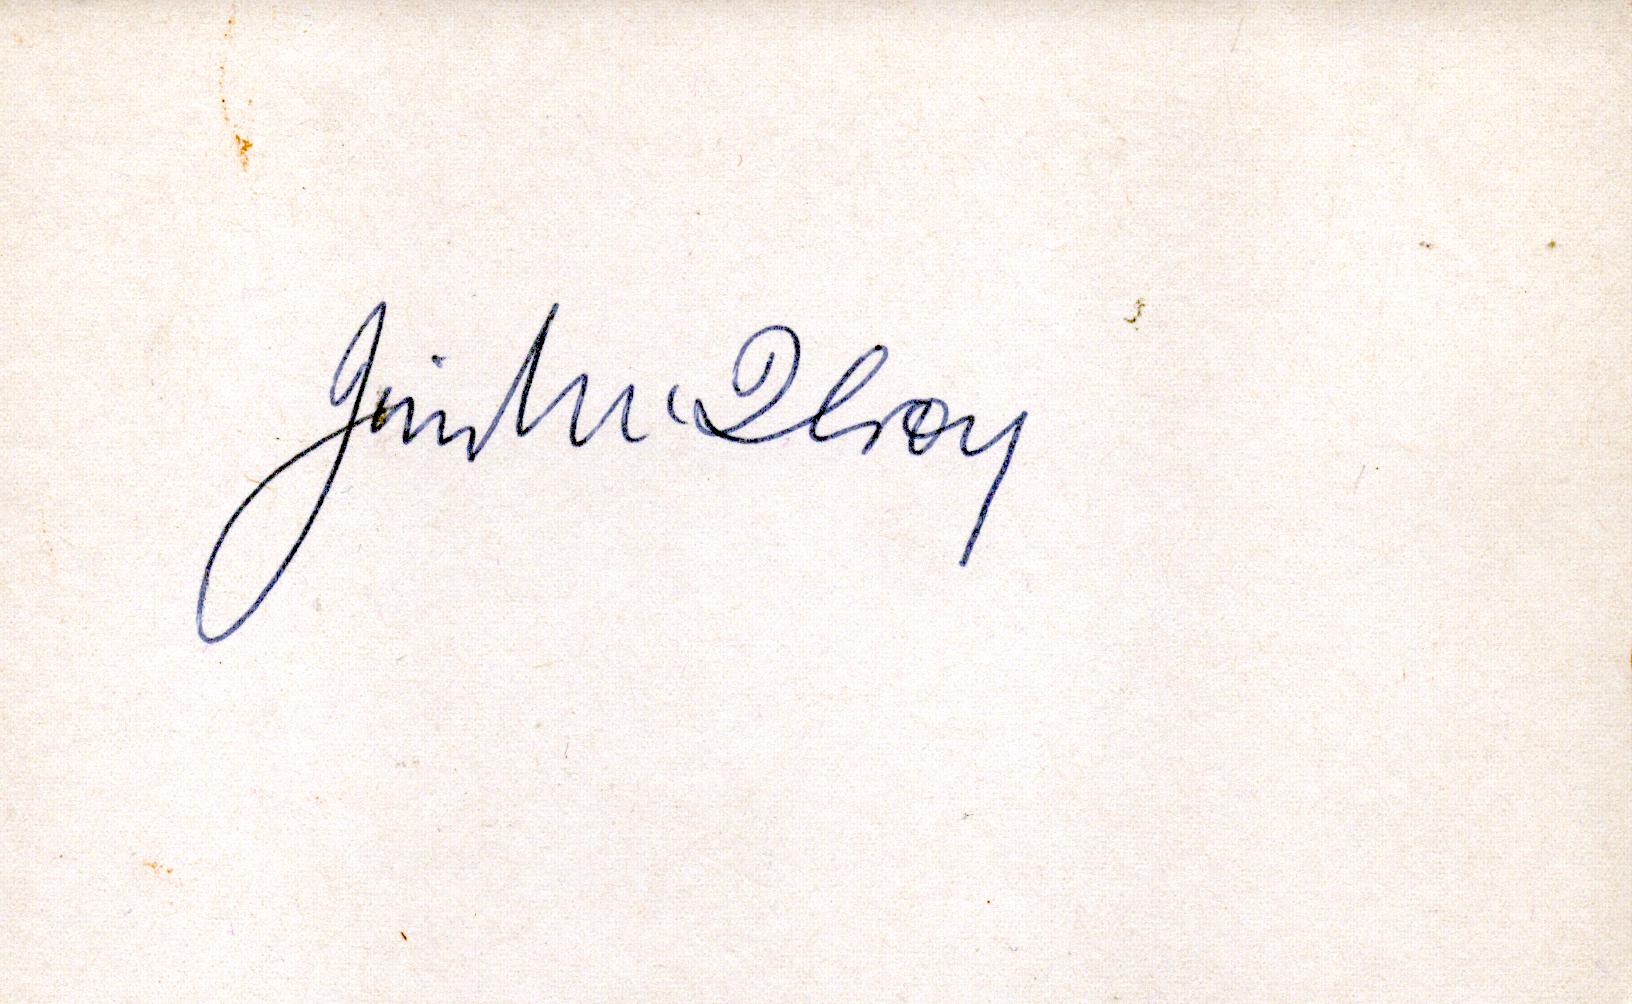 Jim McElroy